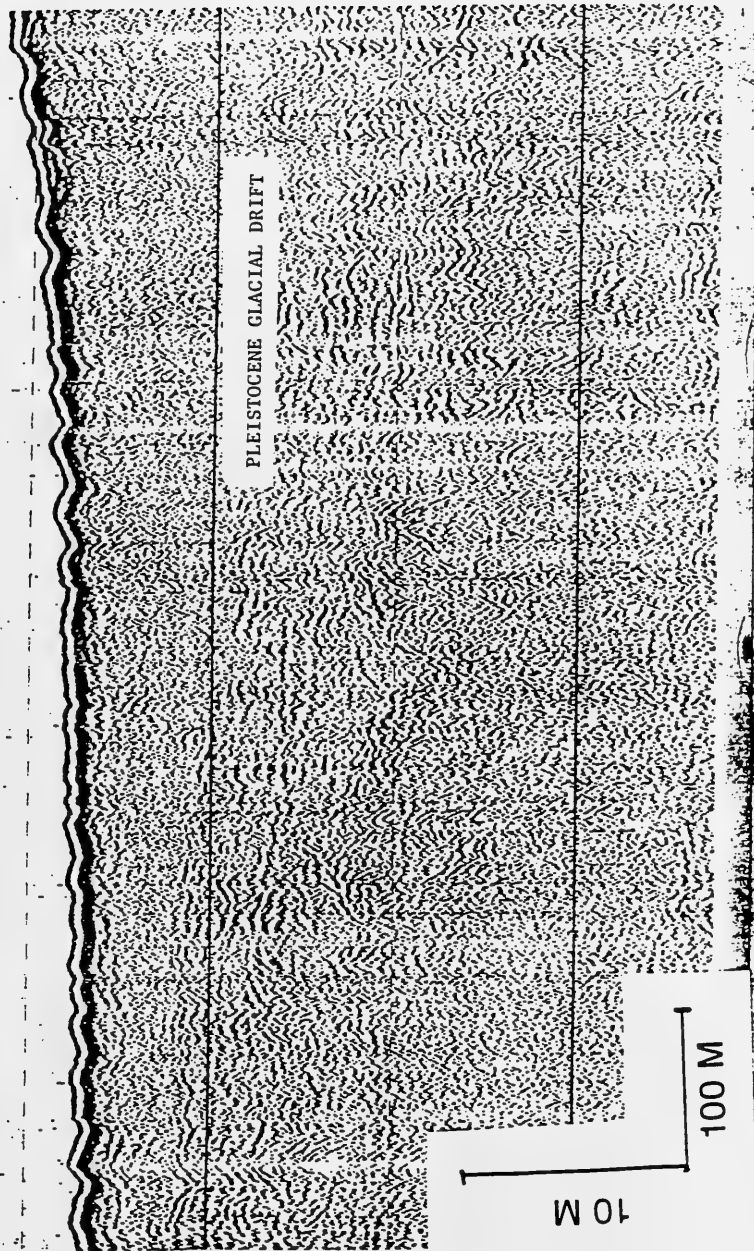 PLEISTOCENE GLACIAL DRIFT
10 M
100 M